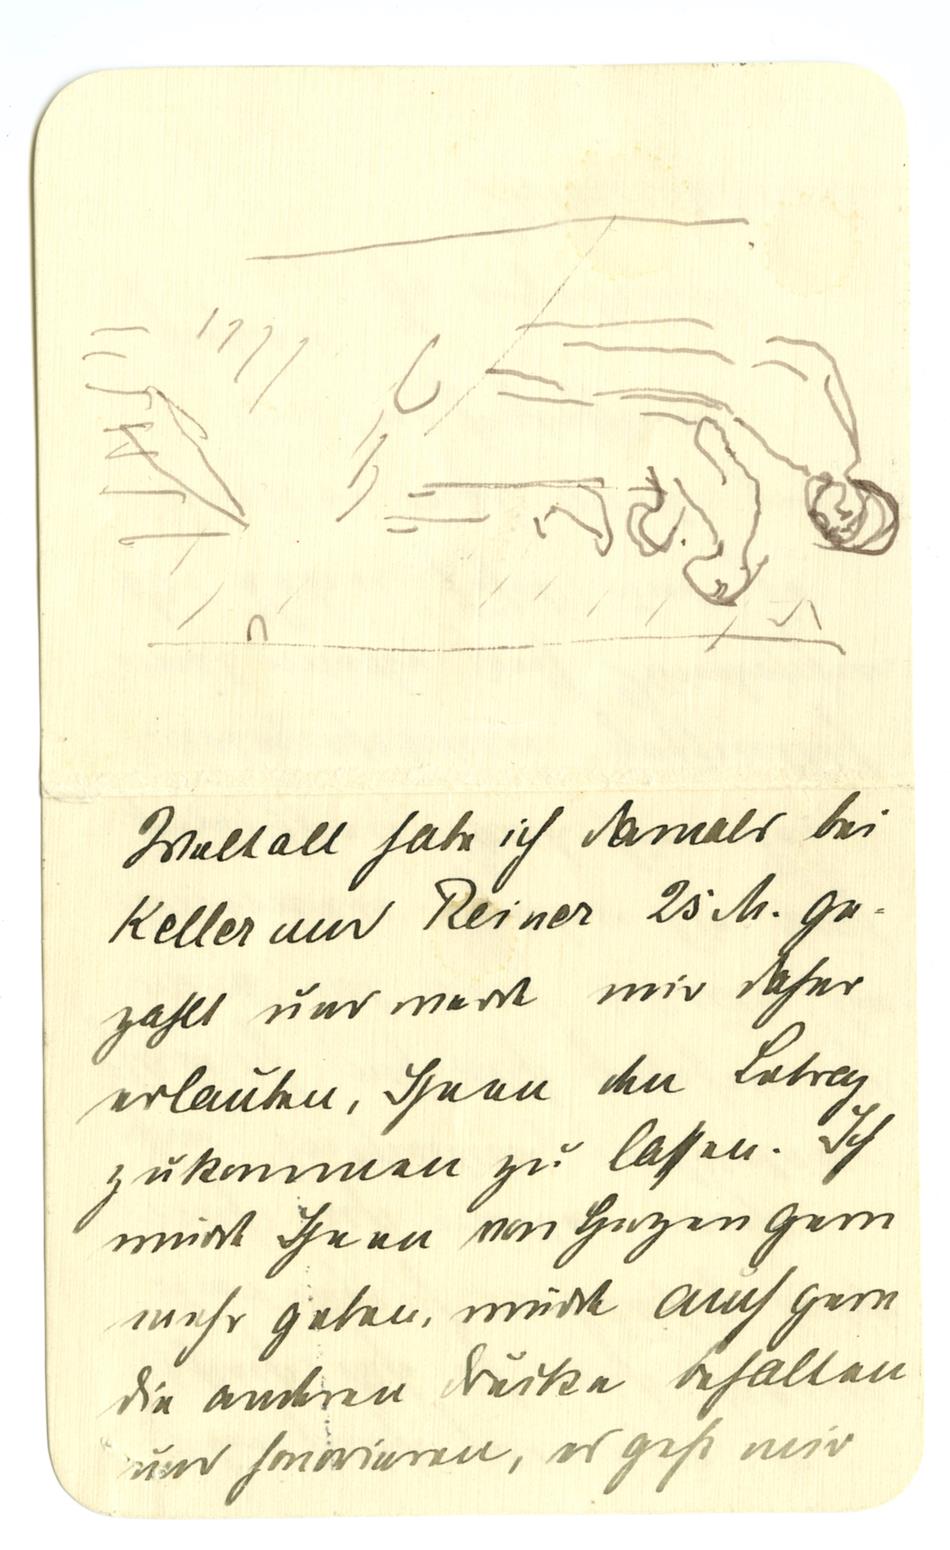 Weltall habe ich damals bei
Keller und Reiner 25 M. ge-
zahlt und werde mir daher
erlauben, Ihnen den Betrag
zukommen zu lassen. Ich
würde Ihnen von Herzen gern
mehr geben, würde auch gern
die anderen Drucke behalten
und honorieren, es geht mir